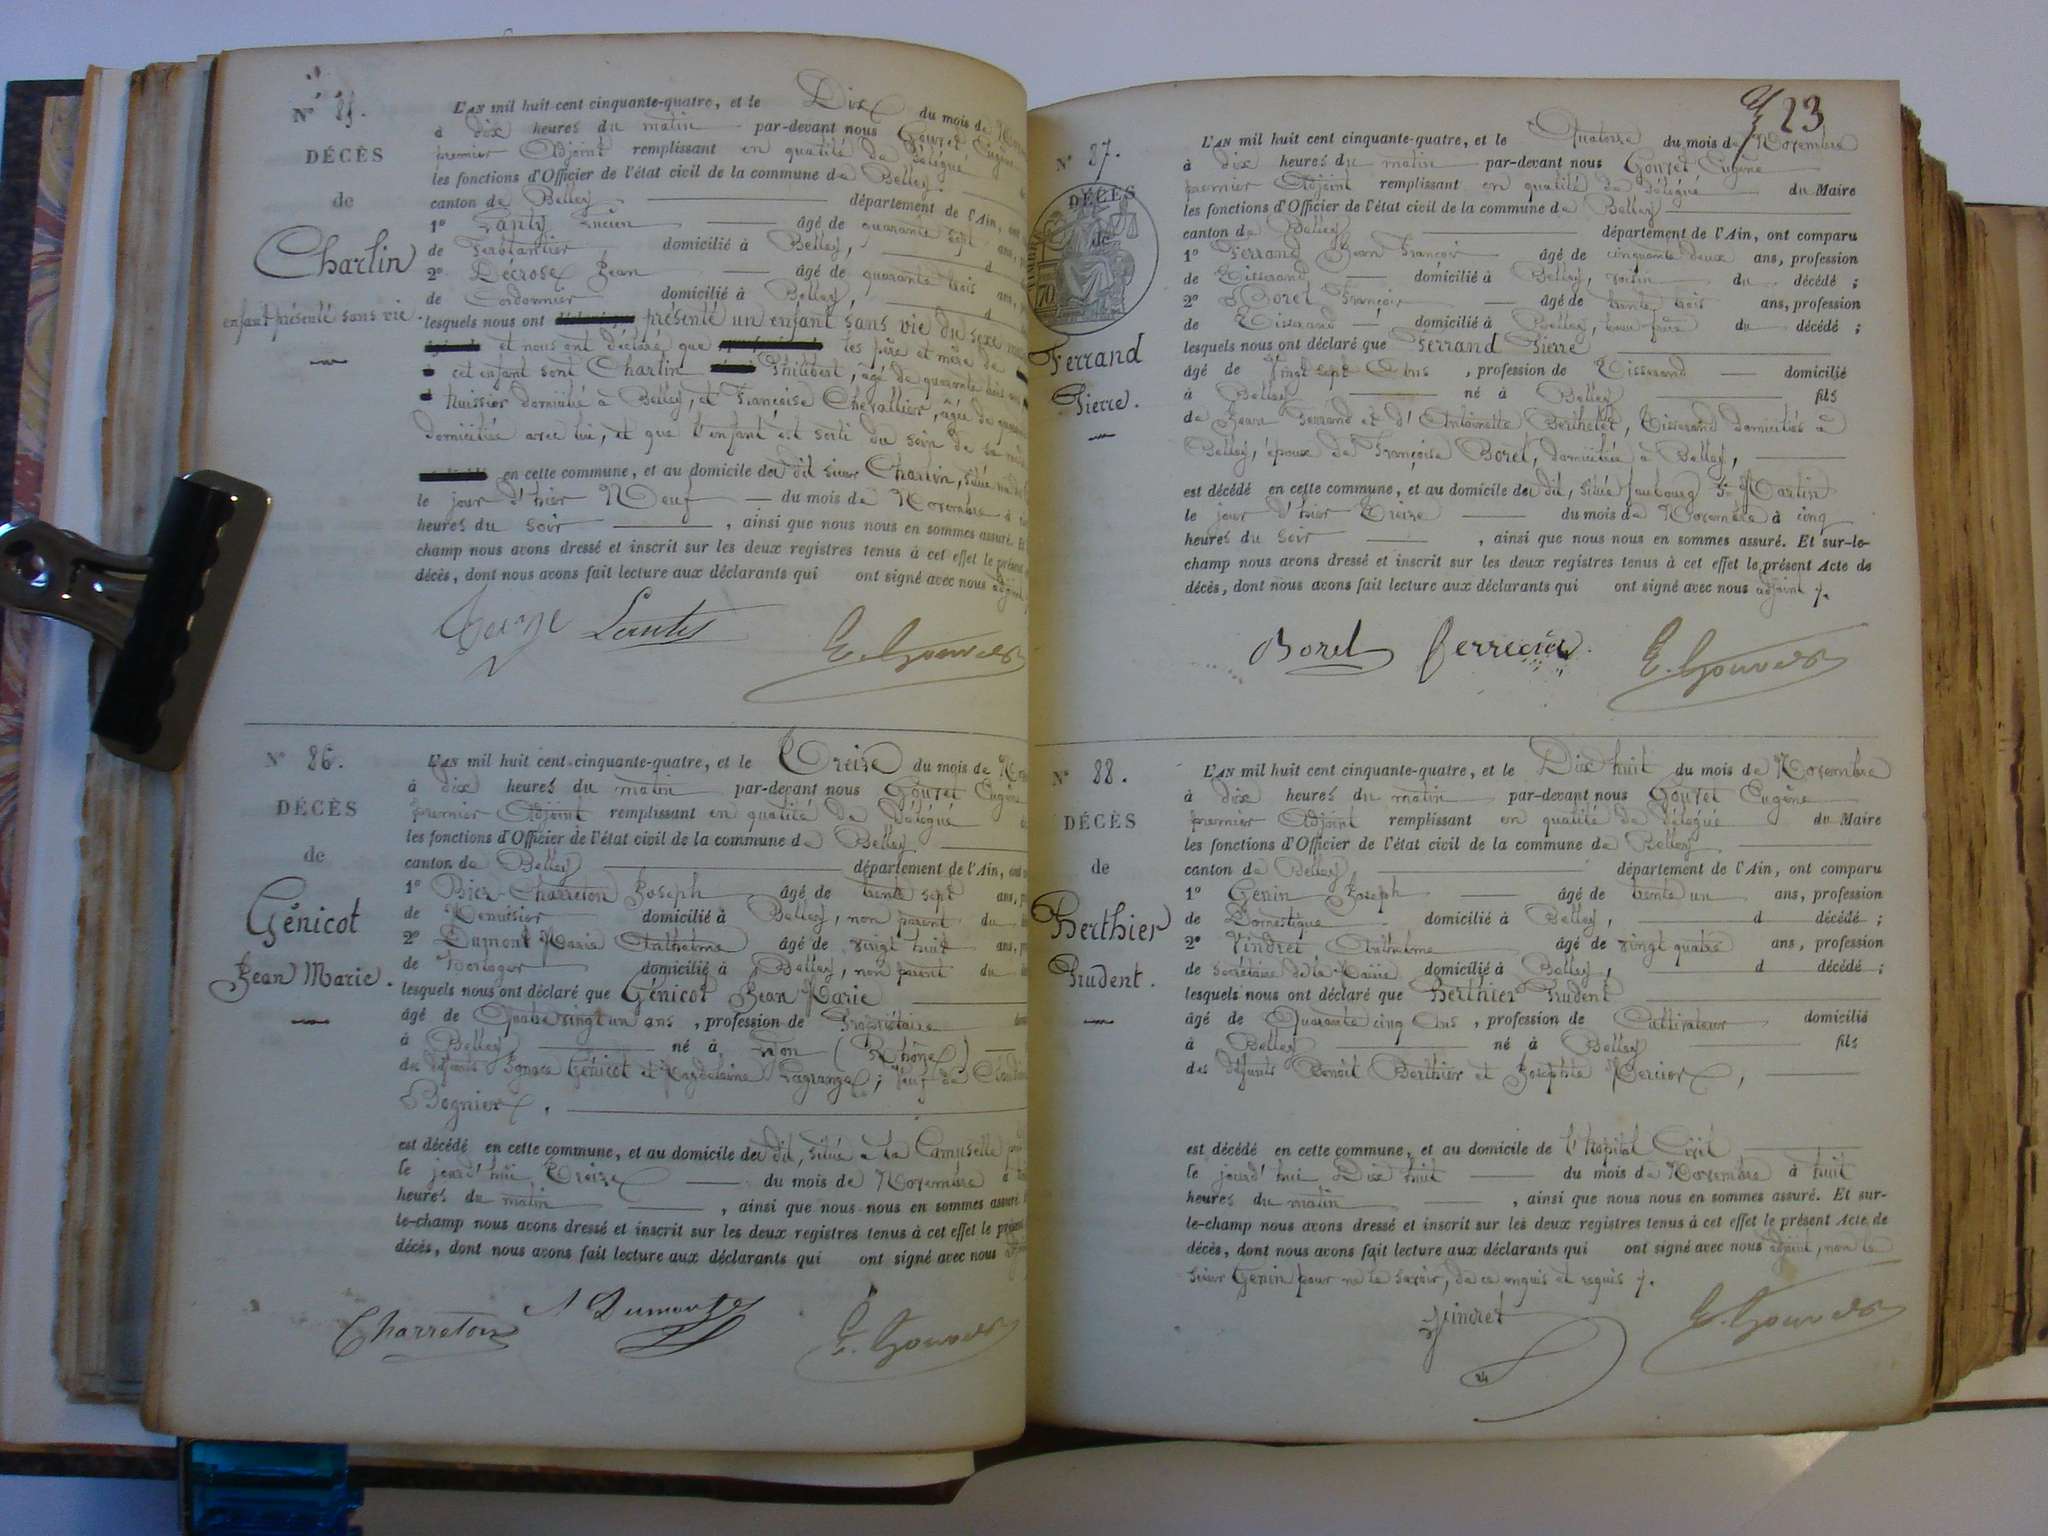 N° 85.
DÉCÈS
de
Charlin
enfant présenté sans vie.
L'AN mil huit cent cinquante-quatre, et le Dix du mois de
à dix heures du matin par-devant nous Gouvet Eugène
premier Adjoint remplissant en qualité de Délégué
les fonctions d'Officier de l'état civil de la commune de Belley
canton de Belley département de l'Ain, ont
1° Lucien âgé de quarante sept ans,
de Ferblantier, domicilié à Belley, d
2° Jean âgé de quarante trois ans,
de Cordonnier domicilié à Belley, d
lesquels nous ont présenté un enfant sans vie du sexe
et nous ont déclaré que les père et mère de
cet enfant sont Charlin Philibert, âgé de quarante
huissier domicilié à Belley, et Françoise Chevallier, âgée de
domiciliée avec lui, et que l'enfant est sorti du sein de sa
en cette commune, et au domicile du dit sieur Charlin, situé
le jour d'hier Neuf du mois de Novembre à
heures du soir , ainsi que nous nous en sommes assuré. Et
champ nous avons dressé et inscrit sur les deux registres tenus à cet effet le présent
décès, dont nous avons fait lecture aux déclarants qui ont signé avec nous adjoint
E. Gouvet
N° 86.
DÉCÈS
de
Génicot
Jean Marie.
L'AN mil huit cent cinquante-quatre, et le Treize du mois de
à dix heures du matin par-devant nous Gouvet Eugène
premier Adjoint remplissant en qualité de Délégué
les fonctions d'Officier de l'état civil de la commune de Belley
canton de Belley département de l'Ain, ont
1° Biez-Charreton Joseph âgé de trente sept ans,
de Menuisier domicilié à Belley, non parent du
2° Dumont Marie Anthelme âgé de vingt huit ans,
de horloger domicilié à Belley, non parent du
lesquels nous ont déclaré que Génicot Jean Marie
âgé de Quatre vingt un ans , profession de Propriétaire
à Belley né à Lyon (Rhône)
des défunts Ignace Génicot et Magdelaine Lagrange; Veuf de
Bognier.
est décédé en cette commune, et au domicile du dit, situé à la Camuselle
le jourd'hui Treize du mois de Novembre à
heures du matin , ainsi que nous nous en sommes assuré
le-champ nous avons dressé et inscrit sur les deux registres tenus à cet effet le présent
décès, dont nous avons fait lecture aux déclarants qui ont signé avec nous
Charreton A Dumont E. Gouvet
23
N° 87.
DÉCÈS
de
Ferrand
Pierre.
L'AN mil huit cent cinquante-quatre, et le Quatorze du mois de Novembre
à dix heures du matin par-devant nous Gouvet Eugène
premier Adjoint remplissant en qualité de délégué du Maire
les fonctions d'Officier de l'état civil de la commune de Belley
canton de Belley département de l'Ain, ont comparu
1° Ferrand Jean François âgé de cinquante deux ans, profession
de Tisserand domicilié à Belley, voisin du décédé ;
2° Borel François âgé de trente trois ans, profession
de Tisserand domicilié à Belley, beau frère du décédé ;
lesquels nous ont déclaré que Ferrand Pierre
âgé de Vingt sept Ans , profession de Tisserand domicilié
à Belley né à Belley fils
de Jean Ferrand et d'Antoinette Berthelet, Tisserand domiciliés à
Belley, époux de Françoise Borel, domiciliée à Belley,
est décédé en cette commune, et au domicile du dit, situé faubourg St Martin
le jour d'hier Treize du mois de Novembre à cinq
heures du soir , ainsi que nous nous en sommes assuré. Et sur-le-
champ nous avons dressé et inscrit sur les deux registres tenus à cet effet le présent Acte de
décès, dont nous avons fait lecture aux déclarants qui ont signé avec nous adjoint
Borel ferrand E. Gouvet
N° 88.
DÉCÈS
de
Berthier
Prudent.
L'AN mil huit cent cinquante-quatre, et le Dix huit du mois de Novembre
à dix heures du matin par-devant nous Gouvet Eugène
premier Adjoint remplissant en qualité de délégué du Maire
les fonctions d'Officier de l'état civil de la commune de Belley
canton de Belley département de l'Ain, ont comparu
1° Genin Joseph âgé de trente un ans, profession
de Domestique domicilié à Belley, d décédé ;
2° Vindret Anthelme âgé de vingt quatre ans, profession
de secrétaire de la Mairie domicilié à Belley, d décédé ;
lesquels nous ont déclaré que Berthier Prudent
âgé de Quarante cinq Ans , profession de Cultivateur domicilié
à Belley né à Belley fils
des défunts Benoît Berthier et Josephte Mercier,
est décédé en cette commune, et au domicile de l'hopital Civil
le jourd'hui Dix huit du mois de Novembre à huit
heures du matin , ainsi que nous nous en sommes assuré. Et sur-
le-champ nous avons dressé et inscrit sur les deux registres tenus à cet effet le présent Acte de
décès, dont nous avons fait lecture aux déclarants qui ont signé avec nous adjoint, non le
sieur Genin pour ne le savoir, de ce enquis et requis
Vindret E. Gouvet